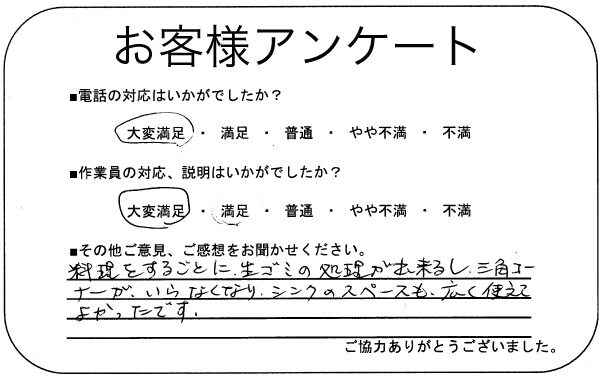 お客様アンケート
■電話の対応はいかがでしたか？
大変満足 ・ 満足 ・ 普通 ・ やや不満 ・ 不満
■作業員の対応、説明はいかがでしたか？
大変満足 ・ 満足 ・ 普通 ・ やや不満 ・ 不満
■その他ご意見、ご感想をお聞かせください。
料理をするごとに、生ゴミの処理が出来るし、三角コー
ナーが、いらなくなり、シンクのスペースも、広く使えて
よかったです。
ご協力ありがとうございました。